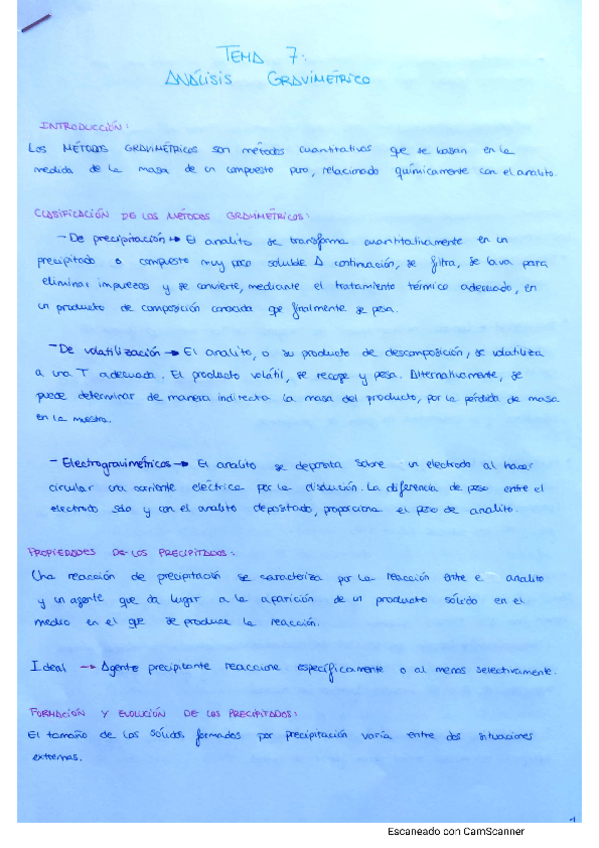 TEMA 7:
ANÁLISIS GRAVIMÉTRICO
INTRODUCCIÓN:
Los MÉTODOS GRAVIMÉTRICOS son métodos cuantitativos que se basan en la
medida de la masa de un compuesto puro, relacionado químicamente con el analito.
CLASIFICACIÓN DE LOS MÉTODOS GRAVIMÉTRICOS:
- De precipitación → El analito se transforma cuantitativamente en un
precipitado o compuesto muy poco soluble A continuación, se filtra, se lava para
eliminar impurezas y se convierte, mediante el tratamiento térmico adecuado, en
un producto de composición conocida que finalmente se pesa.
- De volatilización → El analito, o su producto de descomposición, se volatiliza
a una T adecuada. El producto volátil, se recoge y pesa. Alternativamente, se
puede determinar de manera indirecta la masa del producto, por la pérdida de masa
en la muestra.
- Electrogravimétricos → El analito se deposita sobre un electrodo al hacer
circular una corriente eléctrica por la disolución. La diferencia de peso entre el
electrodo solo y con el analito depositado, proporciona el peso de analito.
PROPIEDADES DE LOS PRECIPITADOS:
Una reacción de precipitación se caracteriza por la reacción entre el analito
y un agente que da lugar a la aparición de un producto sólido en el
medio en el que se produce la reacción.
Ideal → Agente precipitante reaccione específicamente o al menos selectivamente.
FORMACIÓN Y EVOLUCIÓN DE LOS PRECIPITADOS:
El tamaño de los sólidos formados por precipitación varía entre dos situaciones
extremas.
1
Escaneado con CamScanner